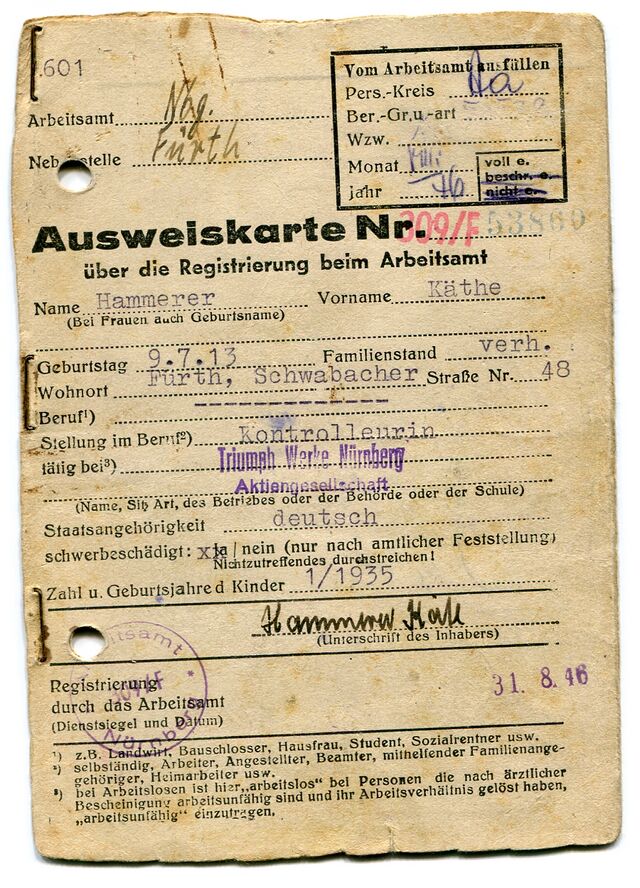 601
Vom Arbeitsamt ausfüllen
Pers.-Kreis Aa
Ber.-Gru.-art
Wzw.
Monat VIII
jahr 46
voll e.
beschr. e.
nicht e.
Arbeitsamt Nbg.
Nebenstelle Fürth
Ausweiskarte Nr. 309/F 53860
über die Registrierung beim Arbeitsamt
Name Hammerer Vorname Käthe
(Bei Frauen auch Geburtsname)
Geburtstag 9.7.13 Familienstand verh.
Wohnort Fürth, Schwabacher Straße Nr. 48
Beruf¹)
Stellung im Beruf²) Kontrolleurin
tätig bei³) Triumph Werke Nürnberg
Aktiengesellschaft
(Name, Sitz Art, des Betriebes oder der Behörde oder der Schule)
Staatsangehörigkeit deutsch
schwerbeschädigt: ja / nein (nur nach amtlicher Feststellung)
Nichtzutreffendes durchstreichen!
Zahl u. Geburtsjahre d Kinder 1/1935
Hammerer Käte
(Unterschrift des Inhabers)
Arbeitsamt
309/F
Nürnberg
Registrierung
durch das Arbeitsamt
(Dienstsiegel und Datum)
31. 8. 46
¹) z.B. Landwirt, Bauschlosser, Hausfrau, Student, Sozialrentner usw.
²) selbständig, Arbeiter, Angestellter, Beamter, mithelfender Familienange-
gehöriger, Heimarbeiter usw.
³) bei Arbeitslosen ist hier „arbeitslos" bei Personen die nach ärztlicher
Bescheinigung arbeitsunfähig sind und ihr Arbeitsverhältnis gelöst haben,
„arbeitsunfähig" einzutragen.